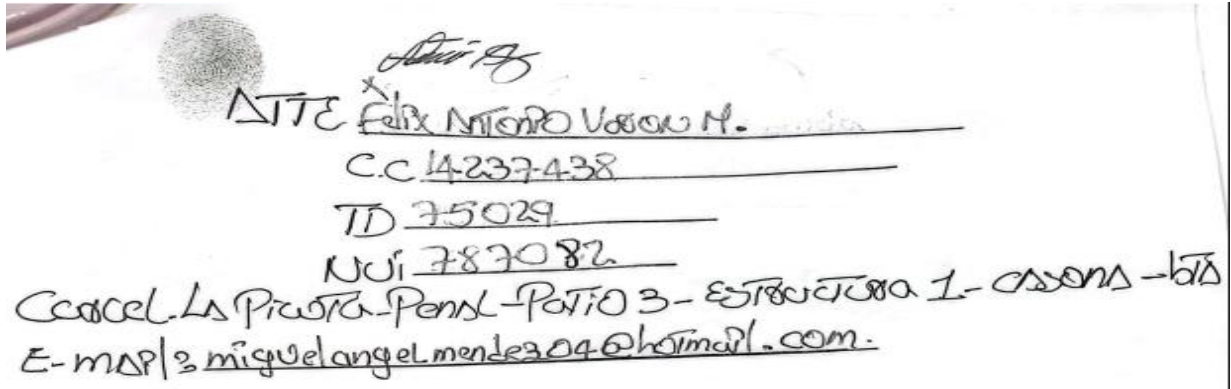 ATTE Felix Antonio M.
C.C 14.237.438
TD 75029
NUi 787082
Carcel La Picota-Penal-Patio 3-Estructura 1-casona-bta
E-mail: miguelangelmendez04@hotmail.com.